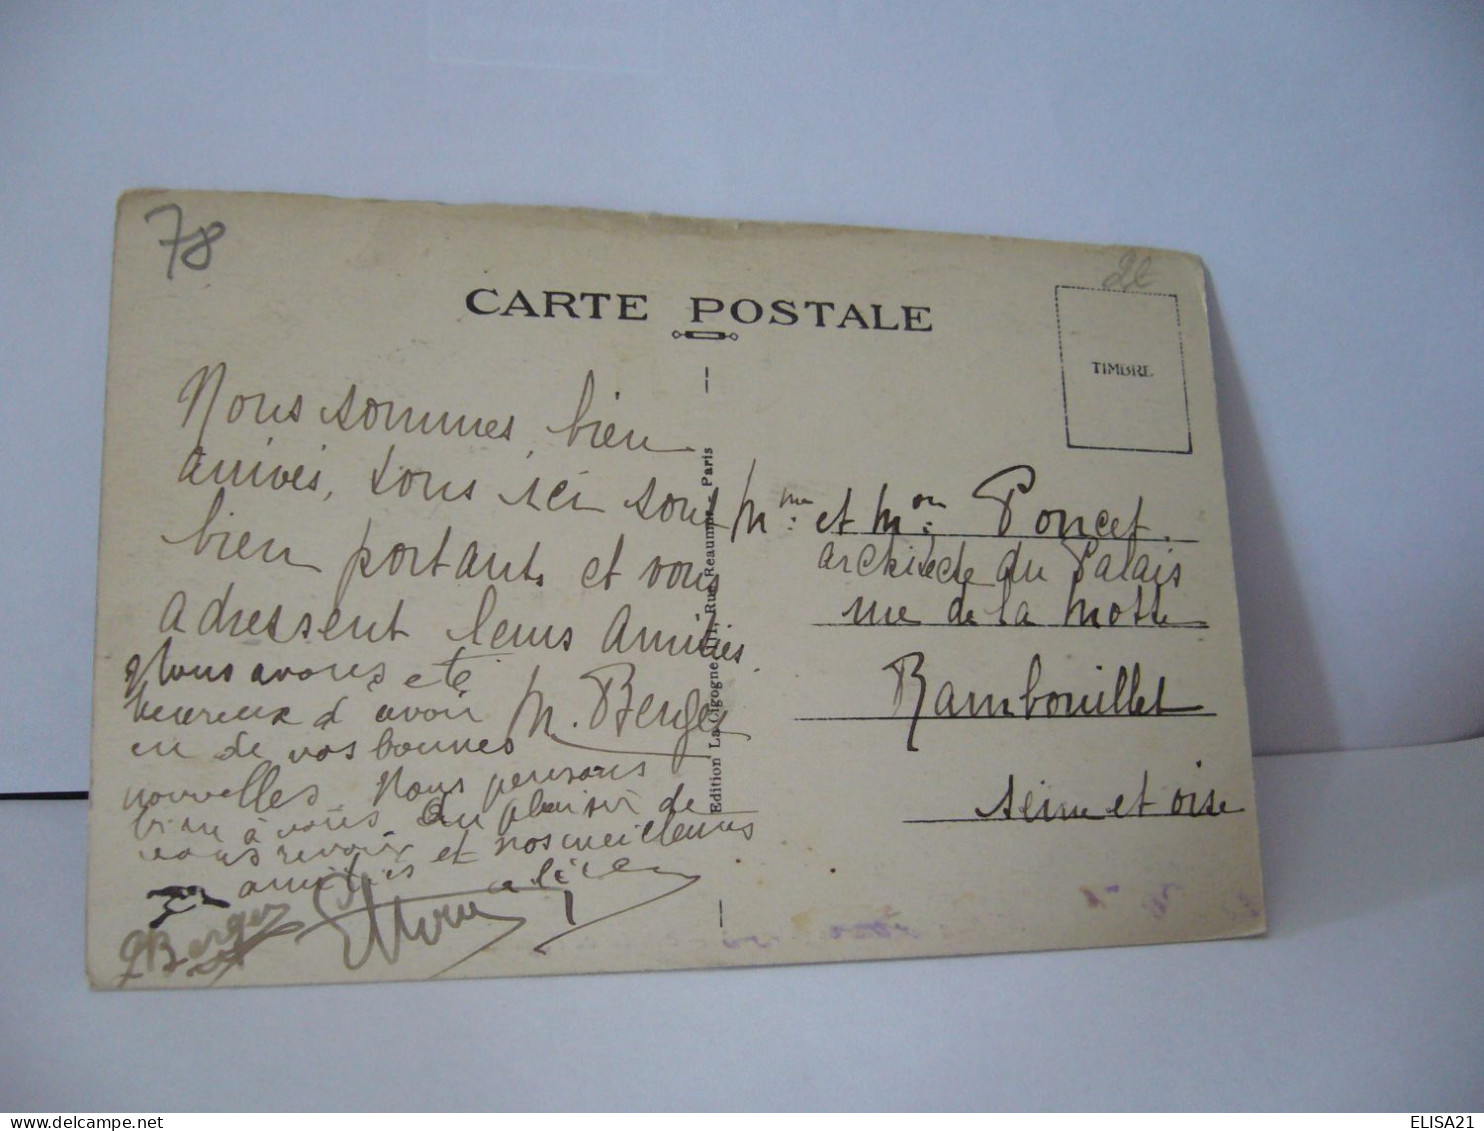 78
2€
CARTE POSTALE
TIMBRE
Nous sommes bien
arrivés, tous ici sont
bien portant et vous
adressent leurs amitiés.
M. Berger
Nous avons été
heureux d avoir
eu de vos bonnes
nouvelles. Nous pensons
bien à vous Au plaisir de
vous revoir
amitiés et nos meilleures
Berger
Mme et Mon: Poncet
architecte du Palais
rue de la Motte
Rambouillet
seine et oise
Edition La Cigogne, 111, Rue Reaumur - Paris
ELISA21